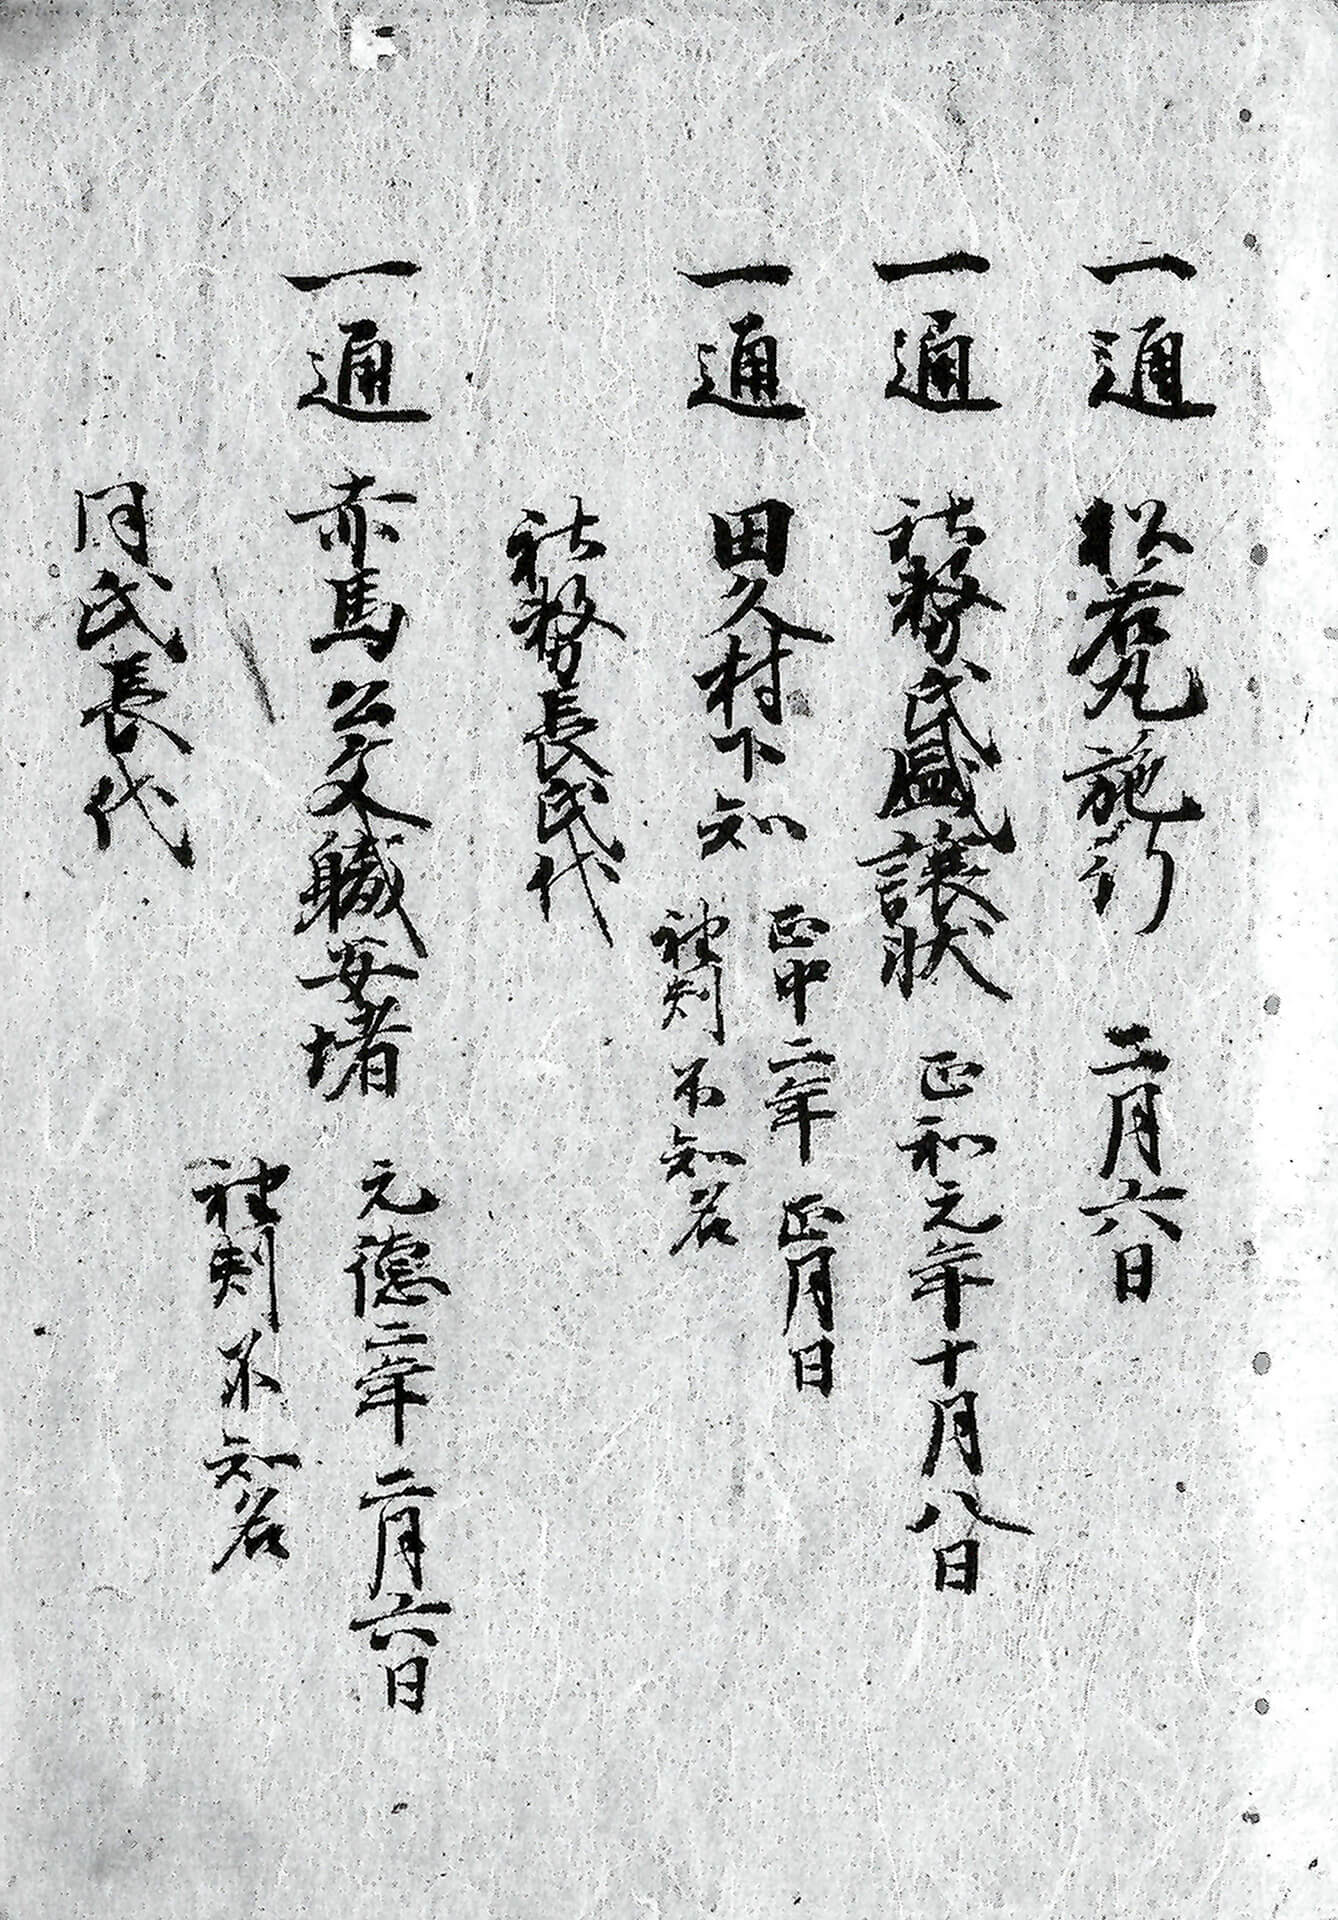 一通 松若丸施行 二月六日
一通 社務氏盛譲状 正和元年十月八日
一通 田久村下知 正中二年 正月日
裡判不知名
社務長氏代
一通 赤馬公文職安堵 元徳二年 二月六日
裡判不知名
同氏長代